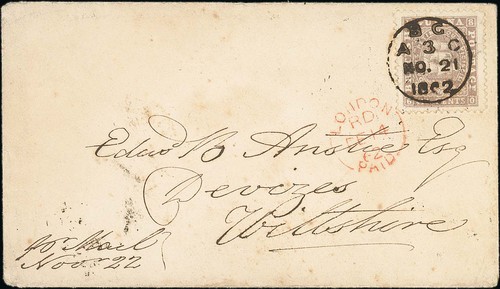 B G
A 3 C
NO. 21
1862
LONDON
RD
62
PAID
CENTS
Edwd B Anstie Esq
Devizes
Wiltshire
pr Mail
Novr 22